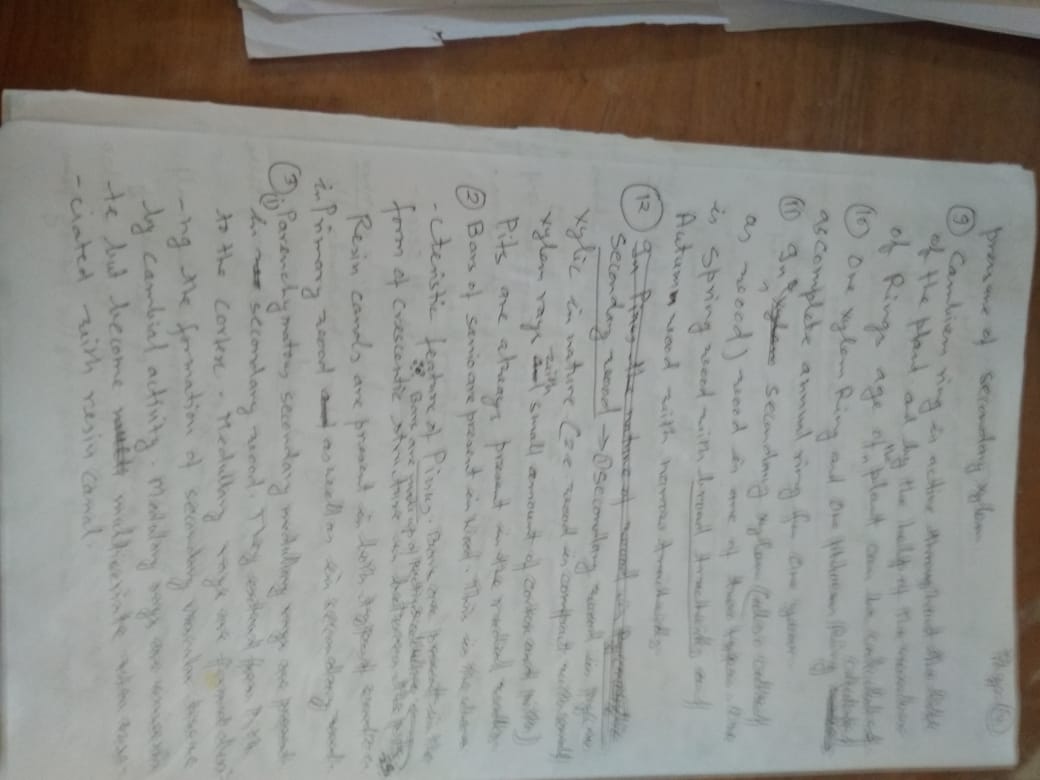 Page (4)
presence of secondary xylem.
(9) Cambium ring is active throughout the life
of the plant and by the help of the number
of Rings age of the plant can be calculated
(10) One xylem Ring and one phloem Ring
as complete annual ring for one year.
(11) In secondary xylem (also called
as wood) wood is are of two types. One
is Spring wood with broad tracheids and
Autumn wood with narrow tracheids.
(12) In Pinus the nature of wood is
Secondary wood → (1) Secondary wood is Pycno
xylic in nature (i.e wood is compact with small
xylem rays with small amount of cortex and pith)
Pits are always present in the radial walls.
(2) Bars of sanio are present in wood. This is the chara
-cteristic feature of Pinus. Bars are present in the
form of crescentic structure in between the pits
Resin canals are present in both types
in Primary wood as well as in secondary wood.
(3) (i) Parenchymatous secondary medullary rays are present
in secondary wood. They extend from Pith
to the cortex. Medullary rays are formed duri
-ng the formation of secondary vascular tissue
by cambial activity. Medullary rays are uniseria
-te but become multiseriate when asso-
-ciated with resin canal.